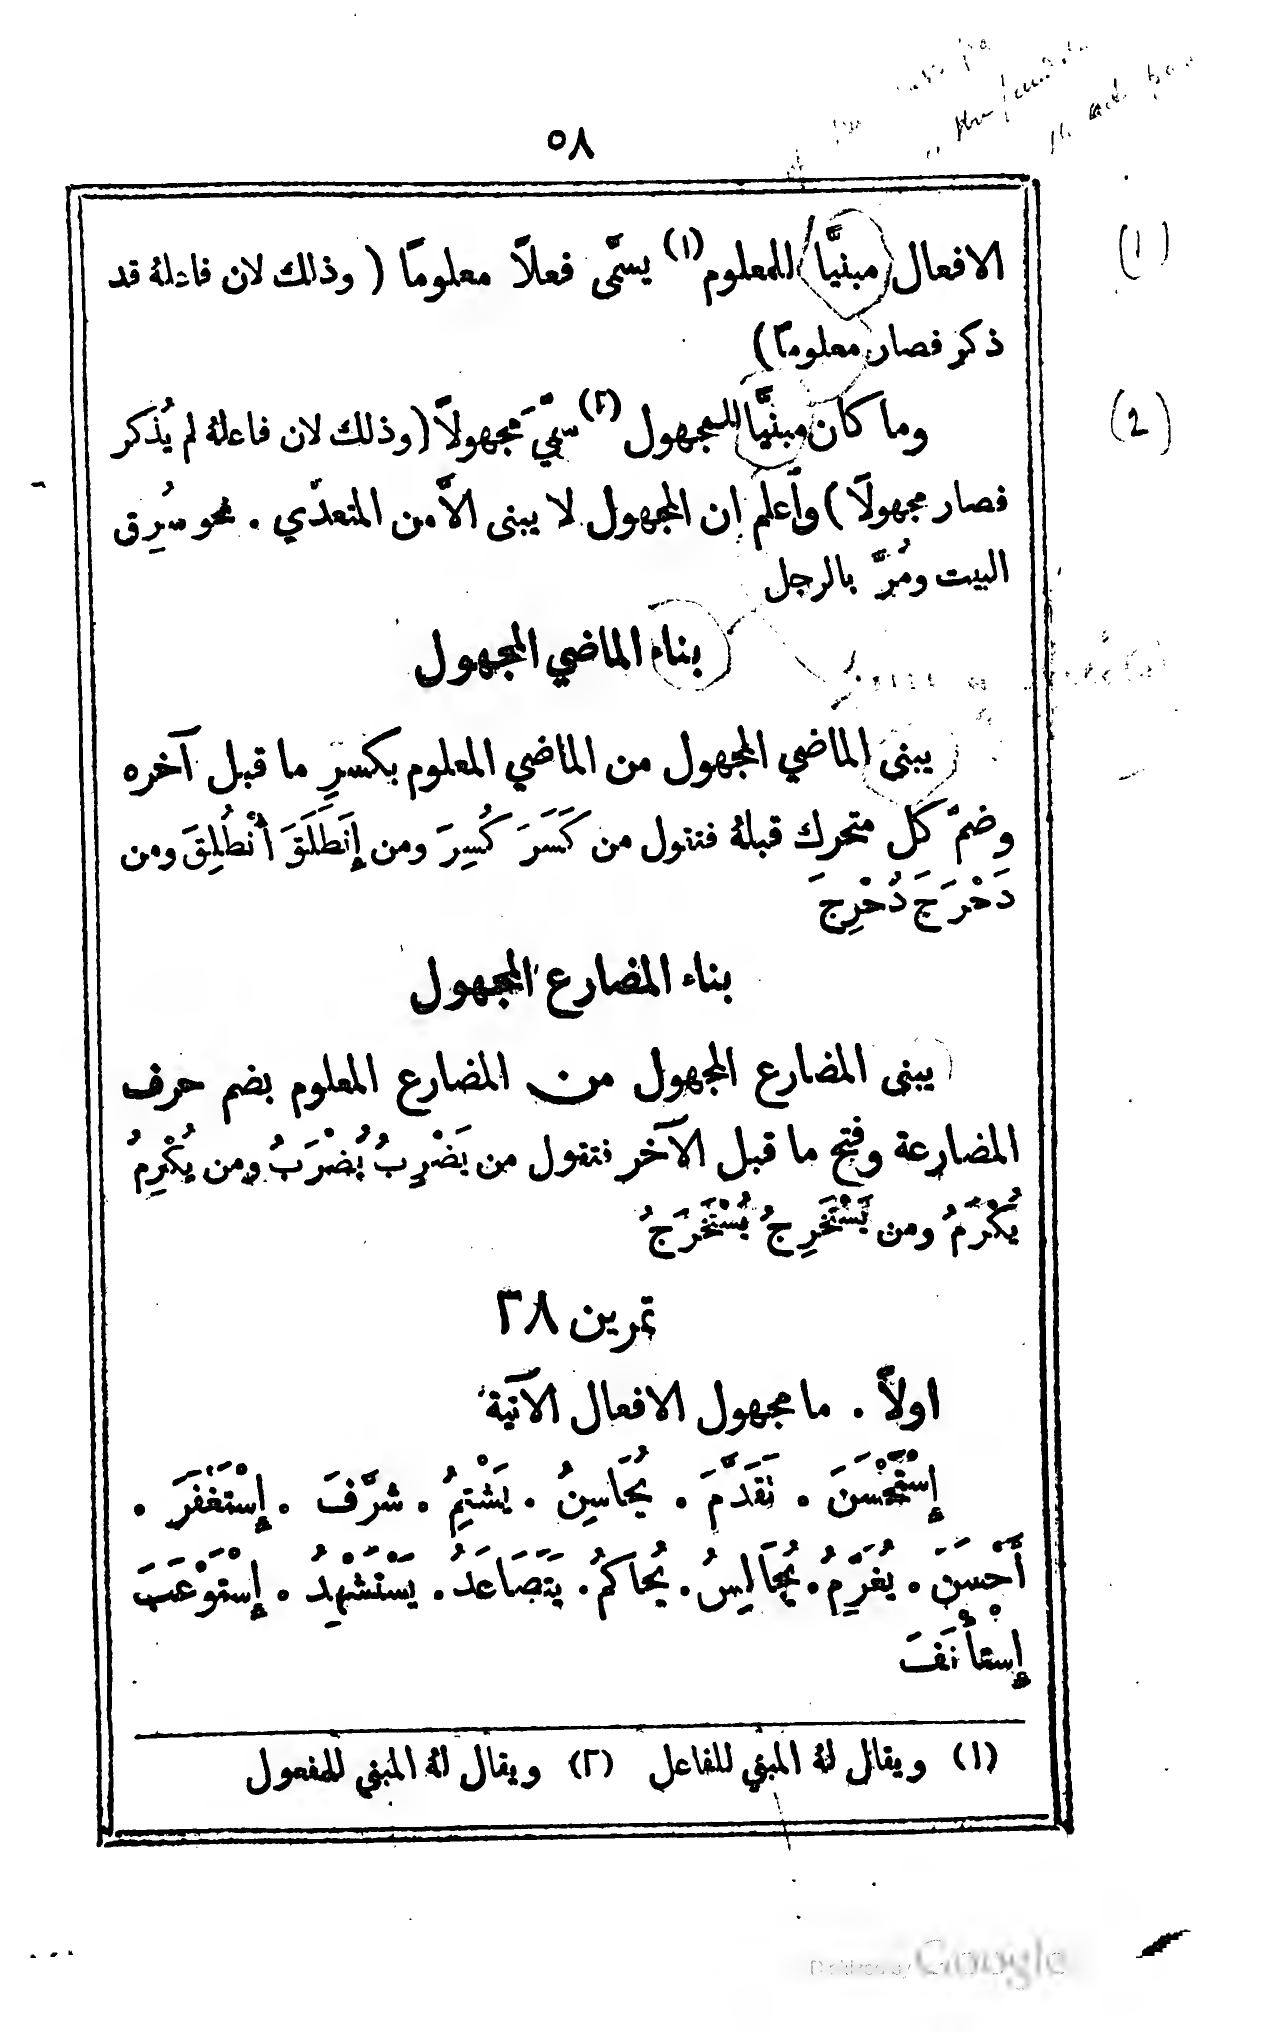 ٥٨
الافعال مبنيًّا للمعلوم (١) يسمَّى فعلاً معلومًا ( وذلك لان فاعلهُ قد
(1)
ذكر فصار معلومًا )
وما كان مبنيًّا للمجهول (٢) سمِّيَ مجهولاً ( وذلك لان فاعلهُ لم يُذكر
(2)
فصار مجهولاً ) وأعلم ان المجهول لا يبنى الاَّ من المتعدّي . نحو سُرِق
البيت ومُرَّ بالرجل
بناء الماضي المجهول
يبنى الماضي المجهول من الماضي المعلوم بكسرِ ما قبل آخره
وضمّ كل متحرك قبلهُ فتقول من كَسَرَ كُسِرَ ومن إِنَطَلَقَ أُنْطُلِقَ ومن
دَحْرَجَ دُحْرِجَ
بناء المضارع المجهول
يبنى المضارع المجهول من المضارع المعلوم بضم حرف
المضارعة وفتح ما قبل الآخر فتقول من يَضْرِبُ يُضْرَبُ ومن يُكْرِمُ
يُكْرَمُ ومن يَسْتَخْرِجُ يُسْتَخْرَجُ
تمرين ٣٨
اولاً . ما مجهول الافعال الآتية
إِسْتَحْسَنَ . تَقَدَّمَ . يُحَاسِنُ . يَشْتِمُ . شرَّفَ . إِسْتَغْفَرَ .
أَحْسَنَ . يُغَرِّمُ . يُجَالِسُ . يُحَاكمُ . يَتَصَاعَدُ . يَسْتَشْهِدُ . إِستَوْعَبَ
إِسْتأْنَفَ
(١) ويقال لهُ المبني للفاعل (٢) ويقال لهُ المبني للمفعول
Digitized by Google